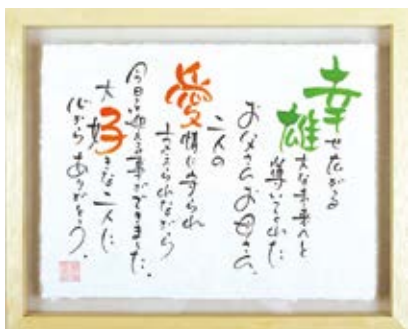 幸せ広がる
雄大な未来へと
導いてくれた
お父さんお母さん。
二人の
愛情に守られ
支えられながら
今日を迎える事ができました。
大好きな二人に
心からありがとう。